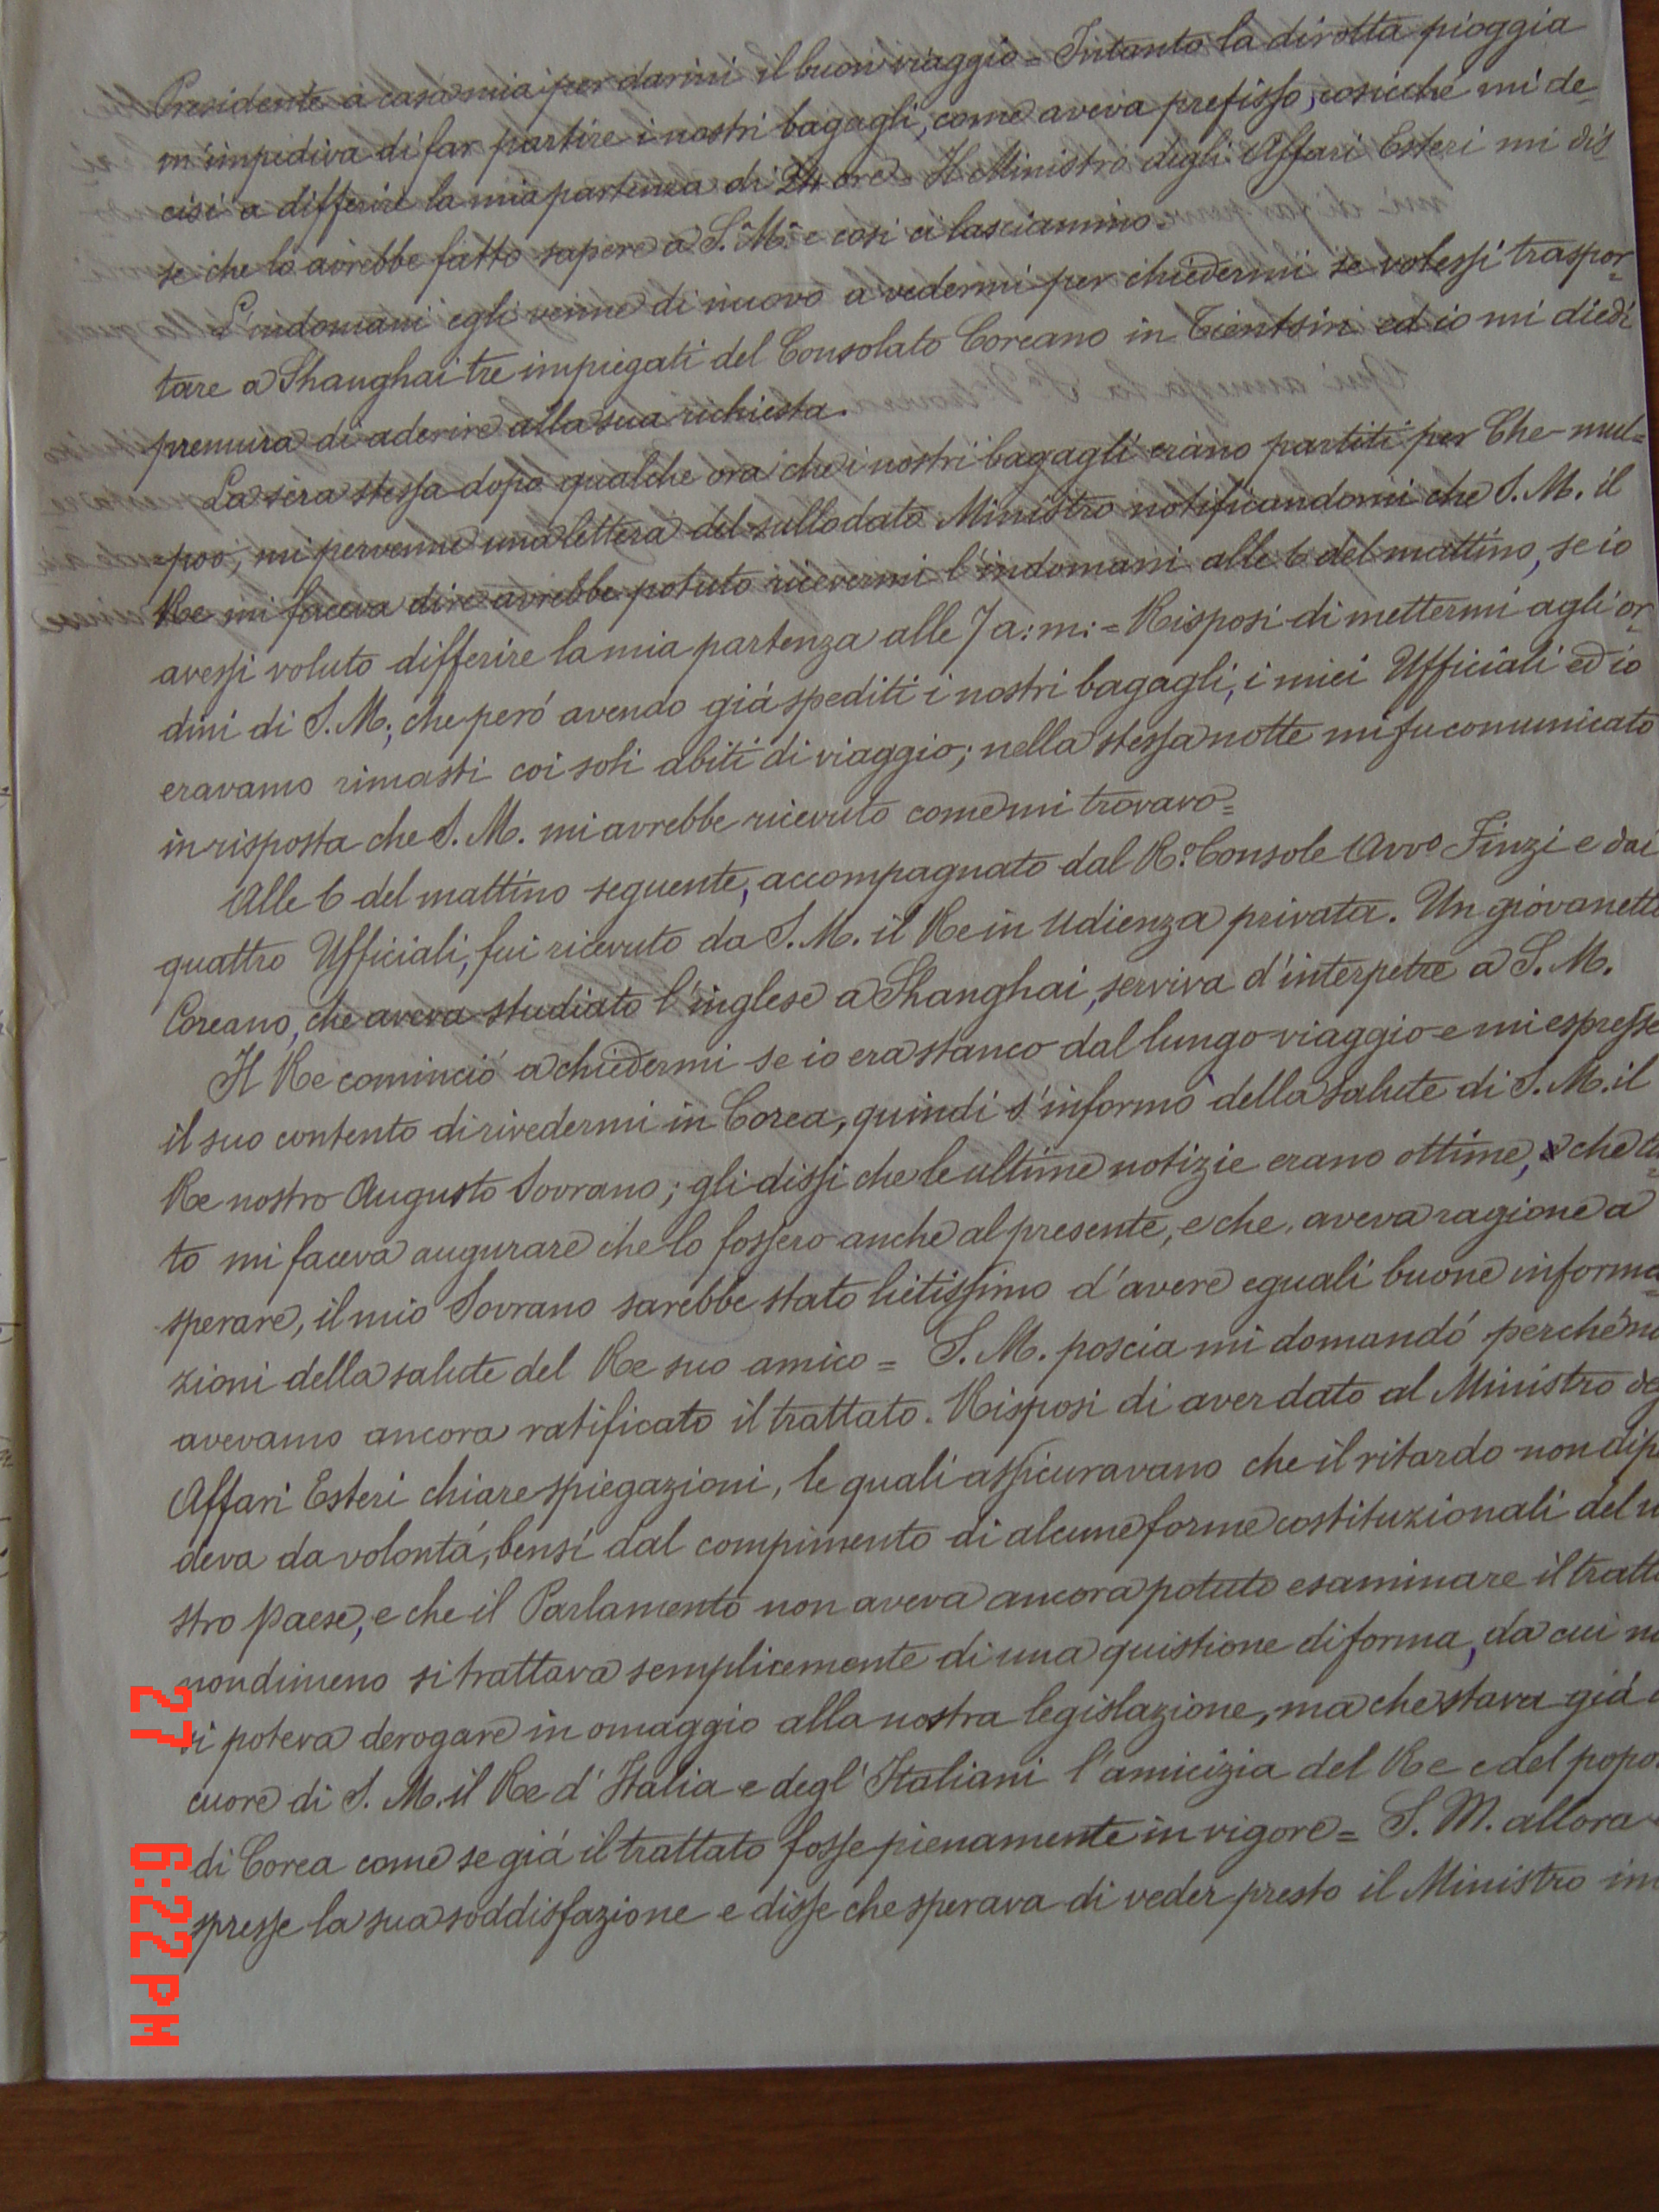 Presidente a casa mia per darmi il buon viaggio = Intanto la dirotta pioggia
m'impediva di far partire i nostri bagagli, come aveva prefisso, cosicché mi de=
cisi a differire la mia partenza di 24 ore = Il Ministro degli Affari Esteri mi dis=
se che lo avrebbe fatto sapere a S. M. e così ci lasciammo.
L'indomani egli venne di nuovo a vedermi per chiedermi se volessi traspor=
tare a Shanghai tre impiegati del Consolato Coreano in Tientsin ed io mi diedi
premura di aderire alla sua richiesta.
La sera stessa dopo qualche ora che i nostri bagagli erano partiti per Che-mul=
poo, mi pervenne una lettera del sullodato Ministro notificandomi che S. M. il
Re mi faceva dire avrebbe potuto ricevermi l'indomani alle 6 del mattino, se io
avessi voluto differire la mia partenza alle 7 a: m: = Risposi di mettermi agli or=
dini di S. M.; che peró avendo giá spediti i nostri bagagli, i miei Ufficiali ed io
eravamo rimasti coi soli abiti di viaggio; nella stessa notte mi fu comunicato
in risposta che S. M. mi avrebbe ricevuto come mi trovavo =
Alle 6 del mattino seguente, accompagnato dal R.º Console Avvº Finzi e dai
quattro Ufficiali, fui ricevuto da S. M. il Re in Udienza privata. Un giovanetto
Coreano, che aveva studiato l'inglese a Shanghai, serviva d'interpetre a S. M.
Il Re cominció a chiedermi se io era stanco dal lungo viaggio e mi espresse
il suo contento di rivedermi in Corea, quindi s'informò della salute di S. M. il
Re nostro Augusto Sovrano; gli dissi che le ultime notizie erano ottime, che tan=
to mi faceva augurare che lo fossero anche al presente, e che, aveva ragione a
sperare, il mio Sovrano sarebbe stato lietissimo d'avere eguali buone informa=
zioni della salute del Re suo amico = S. M. poscia mi domandó perché no
avevamo ancora ratificato il trattato. Risposi di aver dato al Ministro deg
Affari Esteri chiare spiegazioni, le quali assicuravano che il ritardo non dip
deva da volontá, bensí dal compimento di alcune forme costituzionali del no
stro paese, e che il Parlamento non aveva ancora potuto esaminare il tratta
nondimeno si trattava semplicemente di una quistione di forma, da cui no
si poteva derogare in omaggio alla nostra legislazione, ma che stava giá
cuore di S. M. il Re d'Italia e degl'Italiani l'amicizia del Re e del popo
di Corea come se giá il trattato fosse pienamente in vigore = S. M. allora
spresse la sua soddisfazione e disse che sperava di veder presto il Ministro in
27 6:22 PM